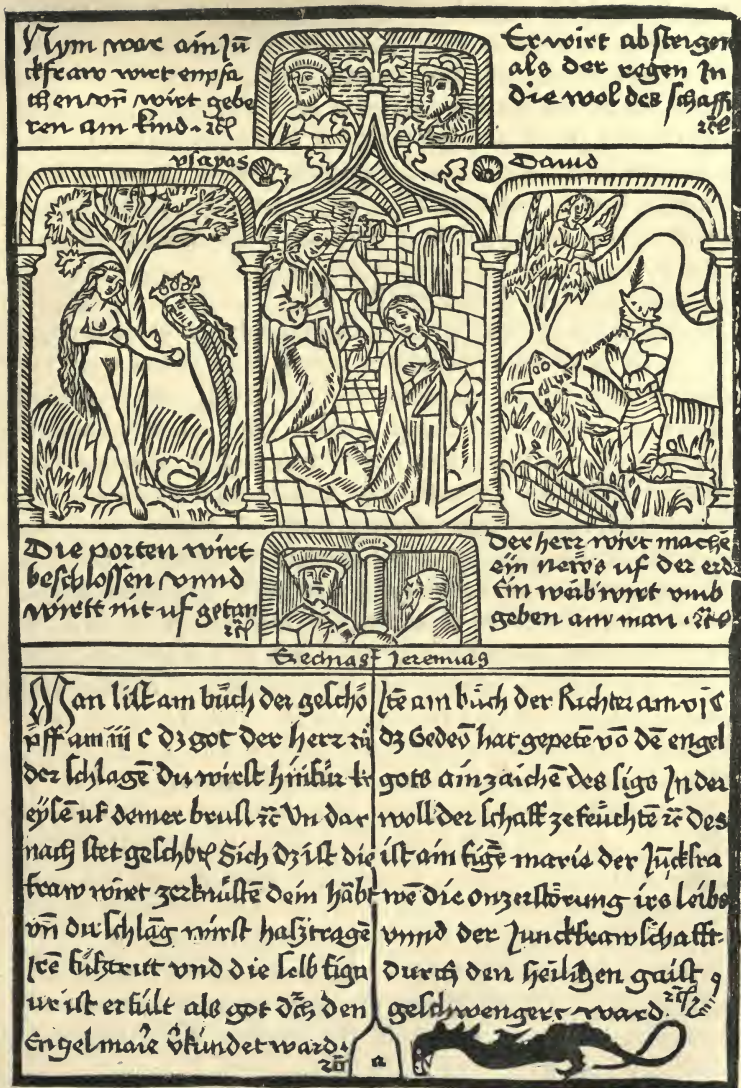 Nym war ain Jū
ckfraw wirt enpfa
chen vn̄ wirt gebe
ren ain kind · ⁊c̄
Er wirt ab steigen
als der regen In
die wol des schaffs
⁊c̄
ysayas
Dauid
Die porten wirt
beschlossen vnnd
wirtt nit uf getan
⁊c̄
Der herr wirt mache
ein news uf der erd
Ein weib wirt vmb
geben ain man · ⁊c̄
Jeremias
Man list am bůch der geschö
pff am iii c dz got der herr zů
der schlagē Du wirst hinfür kr
eysē uf deiner brust ⁊c̄ Vn dar
nach stet Sich dz ist die
fraw wirt zerknüstē dein habt
vn̄ du schlāg wirst halsz tragē
Irē fůsztritt vnd die selb figu
ur ist erfült als got dch den
Engel marie vkündet ward ·
⁊c̄
Ite am bůch der Richter am vi c
dz Gedeō hat gepetē vō dē engel
gots ain zaichē des sigs In der
woll der schaff ze feüchtē ⁊c̄ des
ist ain figē marie der Jūckfra
wē die onzerstörung irs leibs
vnnd der Junckfrawschafft
Durch den heiligen gaist
geschwengert ward · ⁊c̄
a